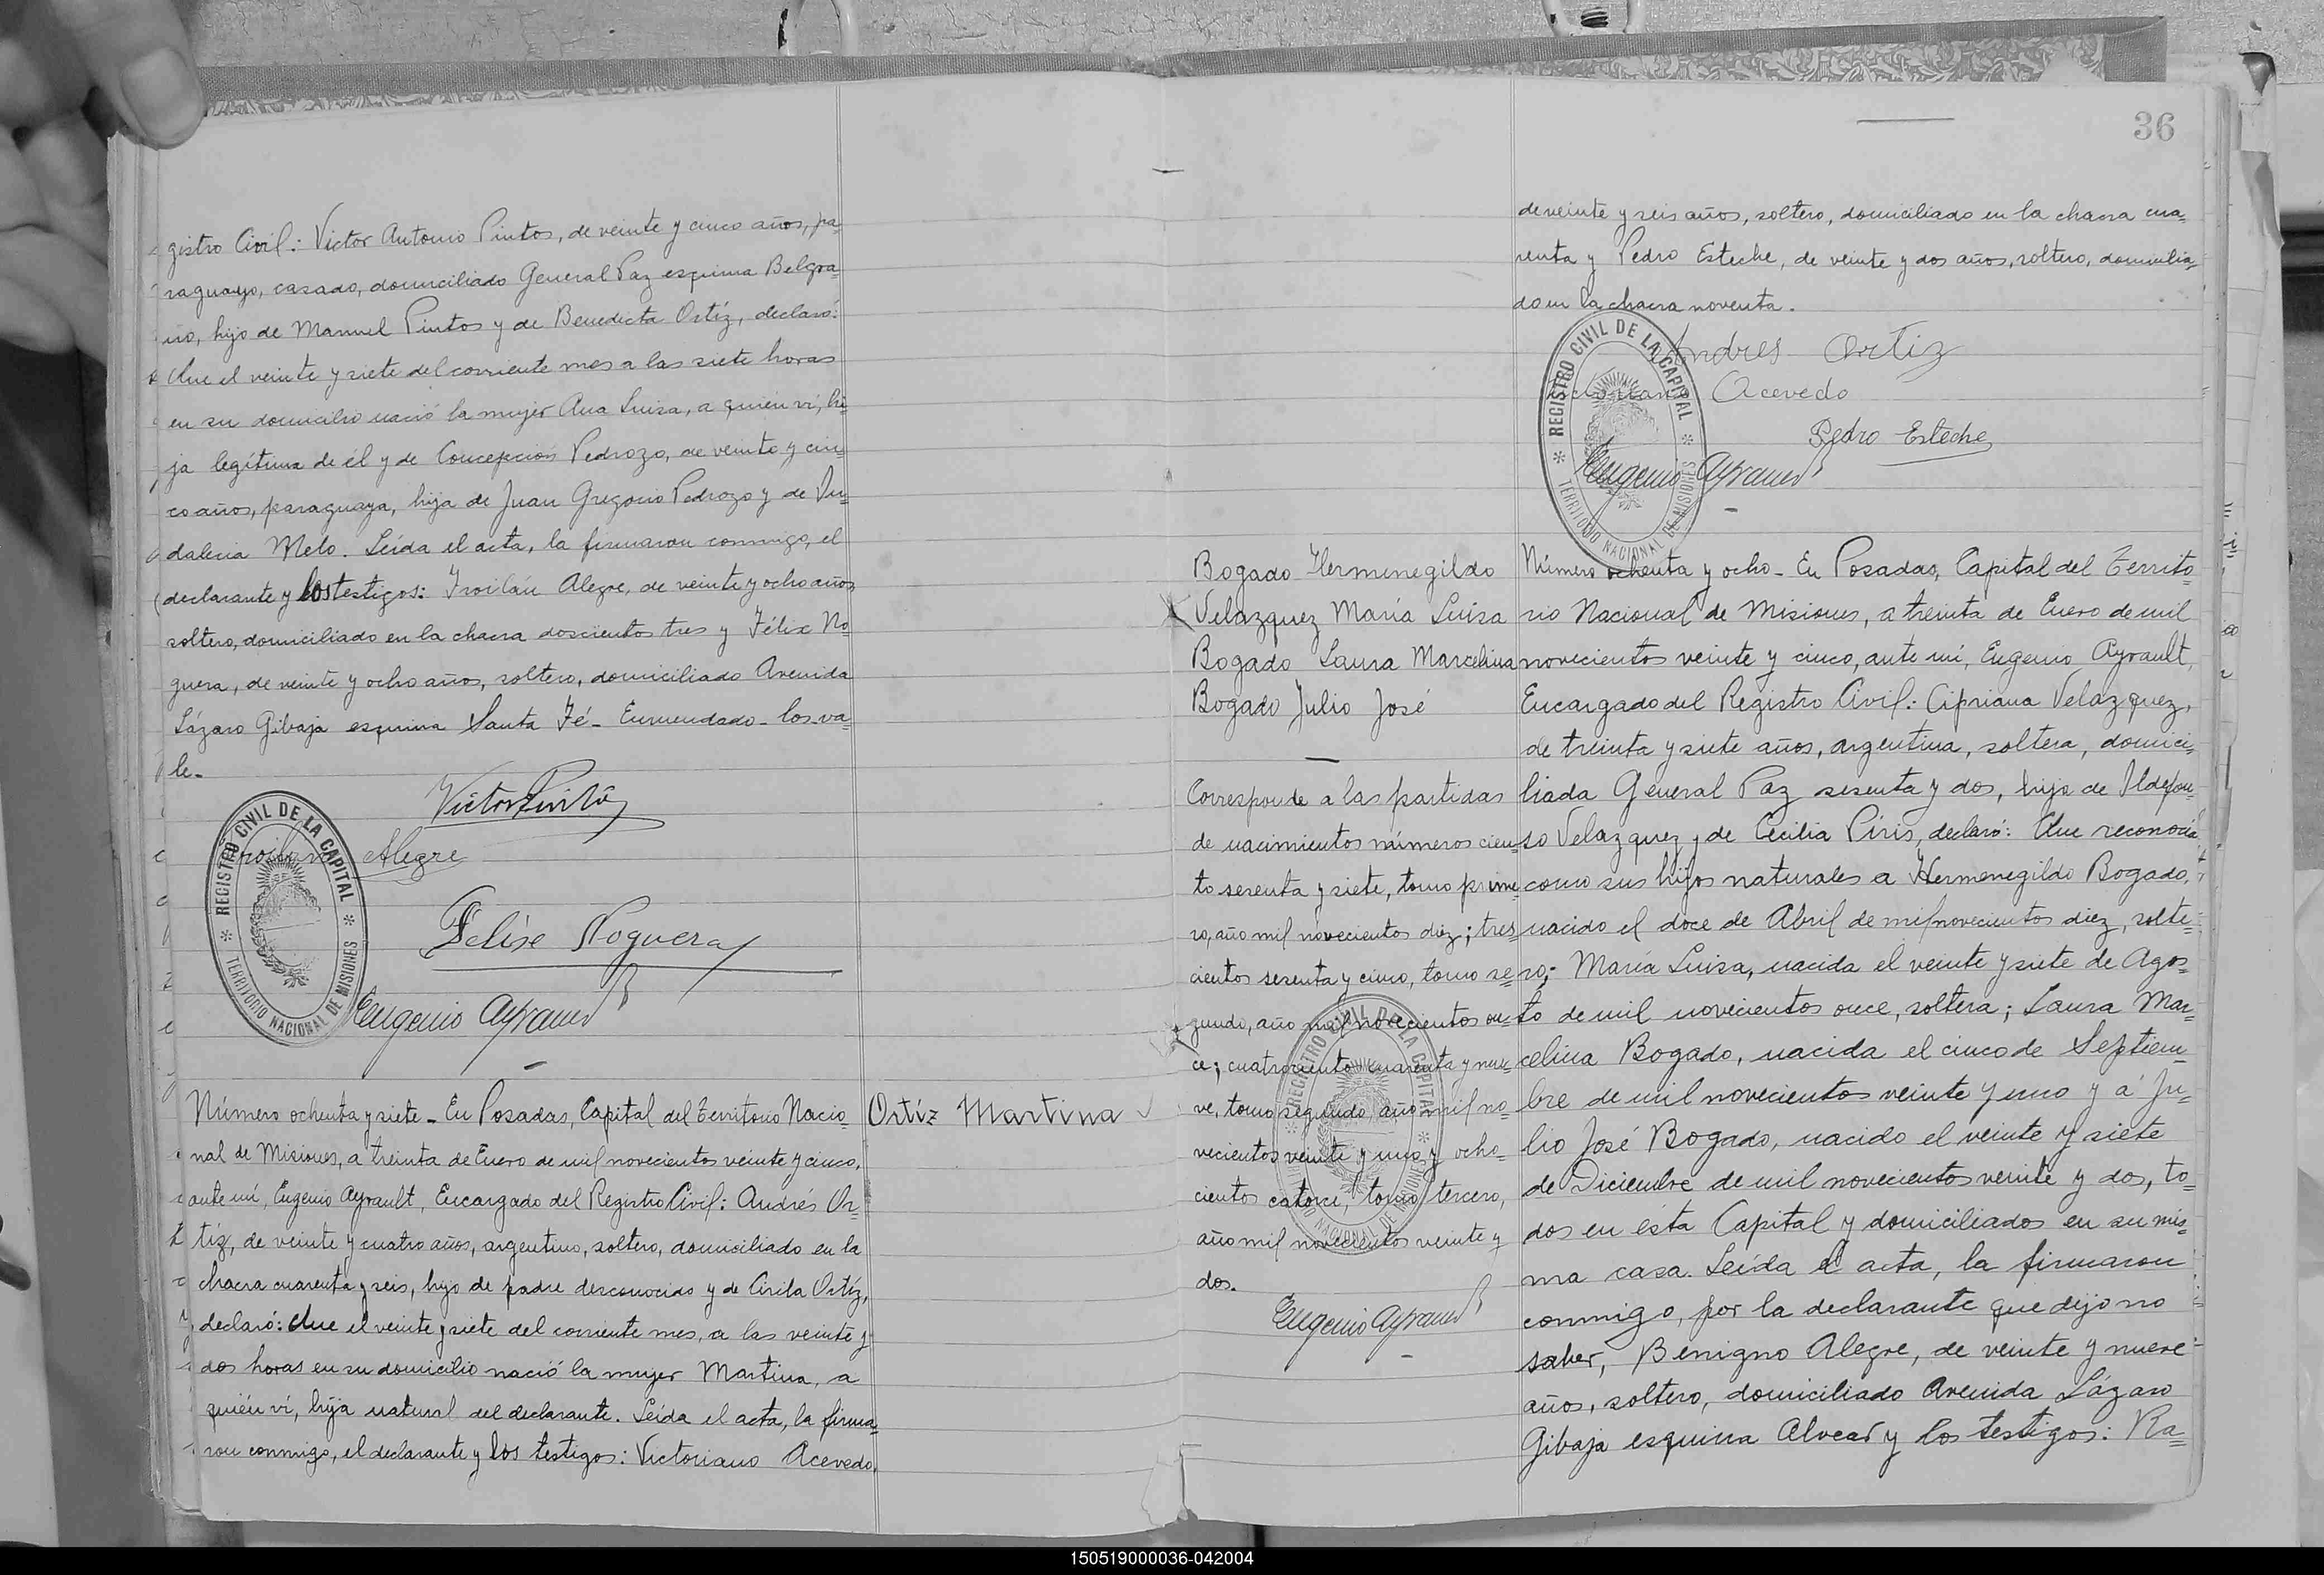 gistro Civil: Victor Antonio Pintos, de veinte y cinco años, pa=
raguayo, casado, domiciliado General Paz esquina Belgra=
no, hijo de Manuel Pintos y de Benedicta Ortíz, declaró:
Que el veinte y siete del corriente mes a las siete horas
en su domicilio nació la mujer Ana Luisa, a quién ví, hi=
ja legítima de él y de Concepción Pedrozo, de veinte y cin=
co años, paraguaya, hija de Juan Gregorio Pedrozo y de In=
dalecia Melo. Leída el acta, la firmaron conmigo, el
declarante y los testigos: Froilán Alegre, de veinte y ocho años
soltero, domiciliado en la chacra doscientos tres y Félix No=
guera, de veinte y ocho años, soltero, domiciliado Avenida
Lázaro Gibaja esquina Santa Fé - Enmendado - los - va=
le -
Victor Pintos
Froilan Alegre
Felise Noguera
Eugenio Ayrault
REGISTRO CIVIL DE LA CAPITAL
TERRITORIO NACIONAL DE MISIONES
Número ochenta y siete - En Posadas, Capital del Territorio Nacio=
nal de Misiones, a treinta de Enero de mil novecientos veinte y cinco,
ante mí, Eugenio Ayrault, Encargado del Registro Civil: Andrés Or=
tíz, de veinte y cuatro años, argentino, soltero, domiciliado en la
chacra cuarenta y seis, hijo de padre desconocido y de Cirila Ortíz,
declaró: Que el veinte y siete del corriente mes, a las veinte y
dos horas en su domicilio nació la mujer Martina, a
quién ví, hija natural del declarante. Leída el acta, la firma=
ron conmigo, el declarante y los testigos: Victoriano Acevedo,
Ortíz Martina
36
de veinte y seis años, soltero, domiciliado en la chacra cua=
renta y Pedro Esteche, de veinte y dos años, soltero, domicilia=
do en la chacra noventa.
Andres Ortiz
Victoriano Acevedo
Pedro Esteche
Eugenio Ayrault
REGISTRO CIVIL DE LA CAPITAL
TERRITORIO NACIONAL DE MISIONES
Bogado Hermenegildo
Velazquez María Luisa
Bogado Laura Marcelina
Bogado Julio José
Corresponde a las partidas
de nacimientos números cien=
to sesenta y siete, tomo prime
ro, año mil novecientos diez; tres
cientos sesenta y cinco, tomo se
gundo, año mil novecientos on=
ce; cuatrocientos cuarenta y nue=
ve, tomo segundo, año mil no=
vecientos veinte y uno y ocho=
cientos catorce, tomo tercero,
año mil novecientos veinte y
dos.
Eugenio Ayrault
REGISTRO CIVIL DE LA CAPITAL
TERRITORIO NACIONAL DE MISIONES
Número ochenta y ocho - En Posadas, Capital del Territo=
rio Nacional de Misiones, a treinta de Enero de mil
novecientos veinte y cinco, ante mí, Eugenio Ayrault,
Encargado del Registro Civil: Cipriana Velazquez,
de treinta y siete años, argentina, soltera, domici=
liada General Paz sesenta y dos, hija de Ildefon=
so Velazquez y de Cecilia Píris, declaró: Que reconocía
como sus hijos naturales a Hermenegildo Bogado,
nacido el doce de Abril de mil novecientos diez, solte=
ro; María Luisa, nacida el veinte y siete de Agos=
to de mil novecientos once, soltera; Laura Mar=
celina Bogado, nacida el cinco de Septiem=
bre de mil novecientos veinte y uno y a Ju=
lio José Bogado, nacido el veinte y siete
de Diciembre de mil novecientos veinte y dos, to=
dos en ésta Capital y domiciliados en su mis=
ma casa. Leída el acta, la firmaron
conmigo, por la declarante que dijo no
saber, Benigno Alegre, de veinte y nueve
años, soltero, domiciliado Avenida Lázaro
Gibaja esquina Alvear y los testigos: Ra=
150519000036-042004